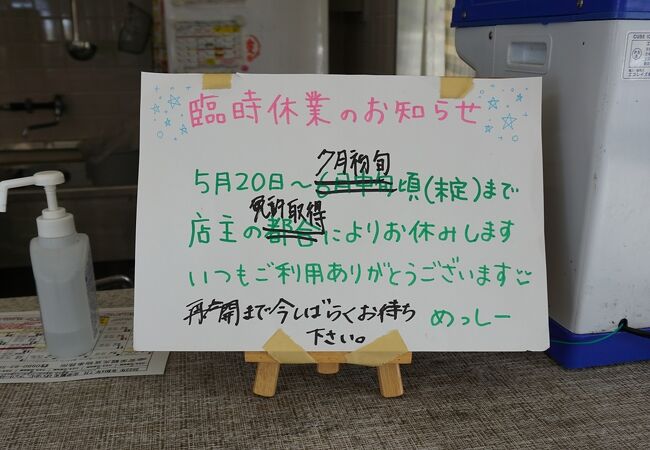 臨時休業のお知らせ
7月初旬
5月20日〜6月中旬頃(未定)まで
免許取得
店主の都合によりお休みします
いつもご利用ありがとうございます
再開まで今しばらくお待ち
下さい。
めっしー